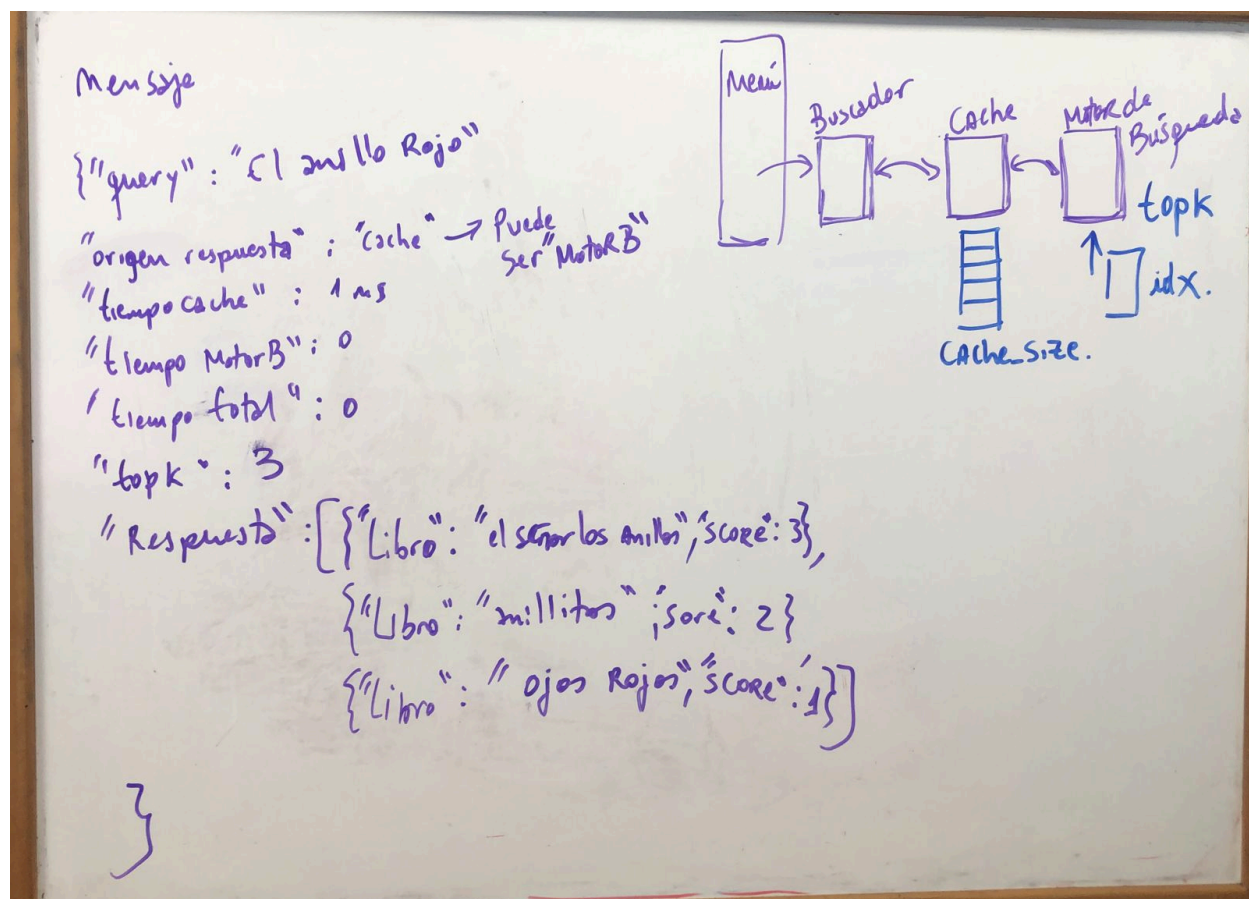 Mensaje
{"query" : "El anillo Rojo"
"origen respuesta" : "cache" → Puede
ser "MotorB"
"tiempo cache" : 1 ms
"tiempo MotorB" : 0
"tiempo total" : 0
"topk" : 3
"Respuesta" : [{"Libro" : "el señor los anillos", "score" : 3},
{"Libro" : "anillitos" ; "sore" : 2}
{"Libro" : "ojos Rojos", "score" : 1}]
}
Menú
Buscador
CAche
MotoRde
Búsqueda
topk
idx.
CAche_Size.